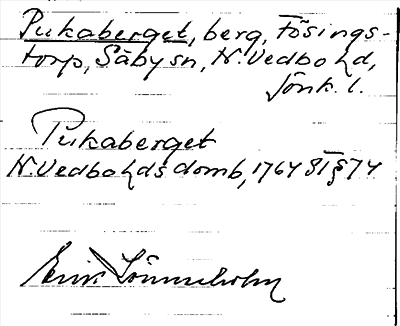 Pukaberget, berg, Fösings-
torp, Säby sn, N. Vedbo hd,
Jönk. l.
Pukaberget
N. Vedbo hds domb, 1764 ST § 74
Erik Lönnholm